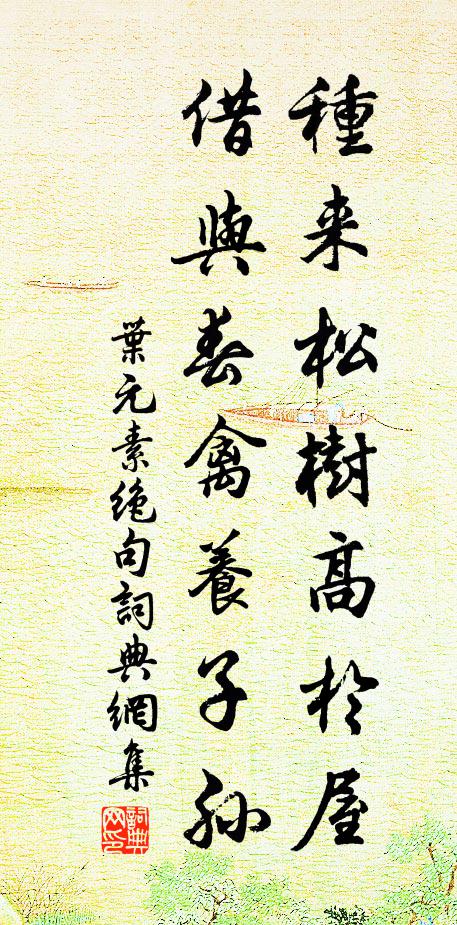 種来松樹高於屋
借與春禽養子孫
葉元素絶句詞典網集
詞典网印